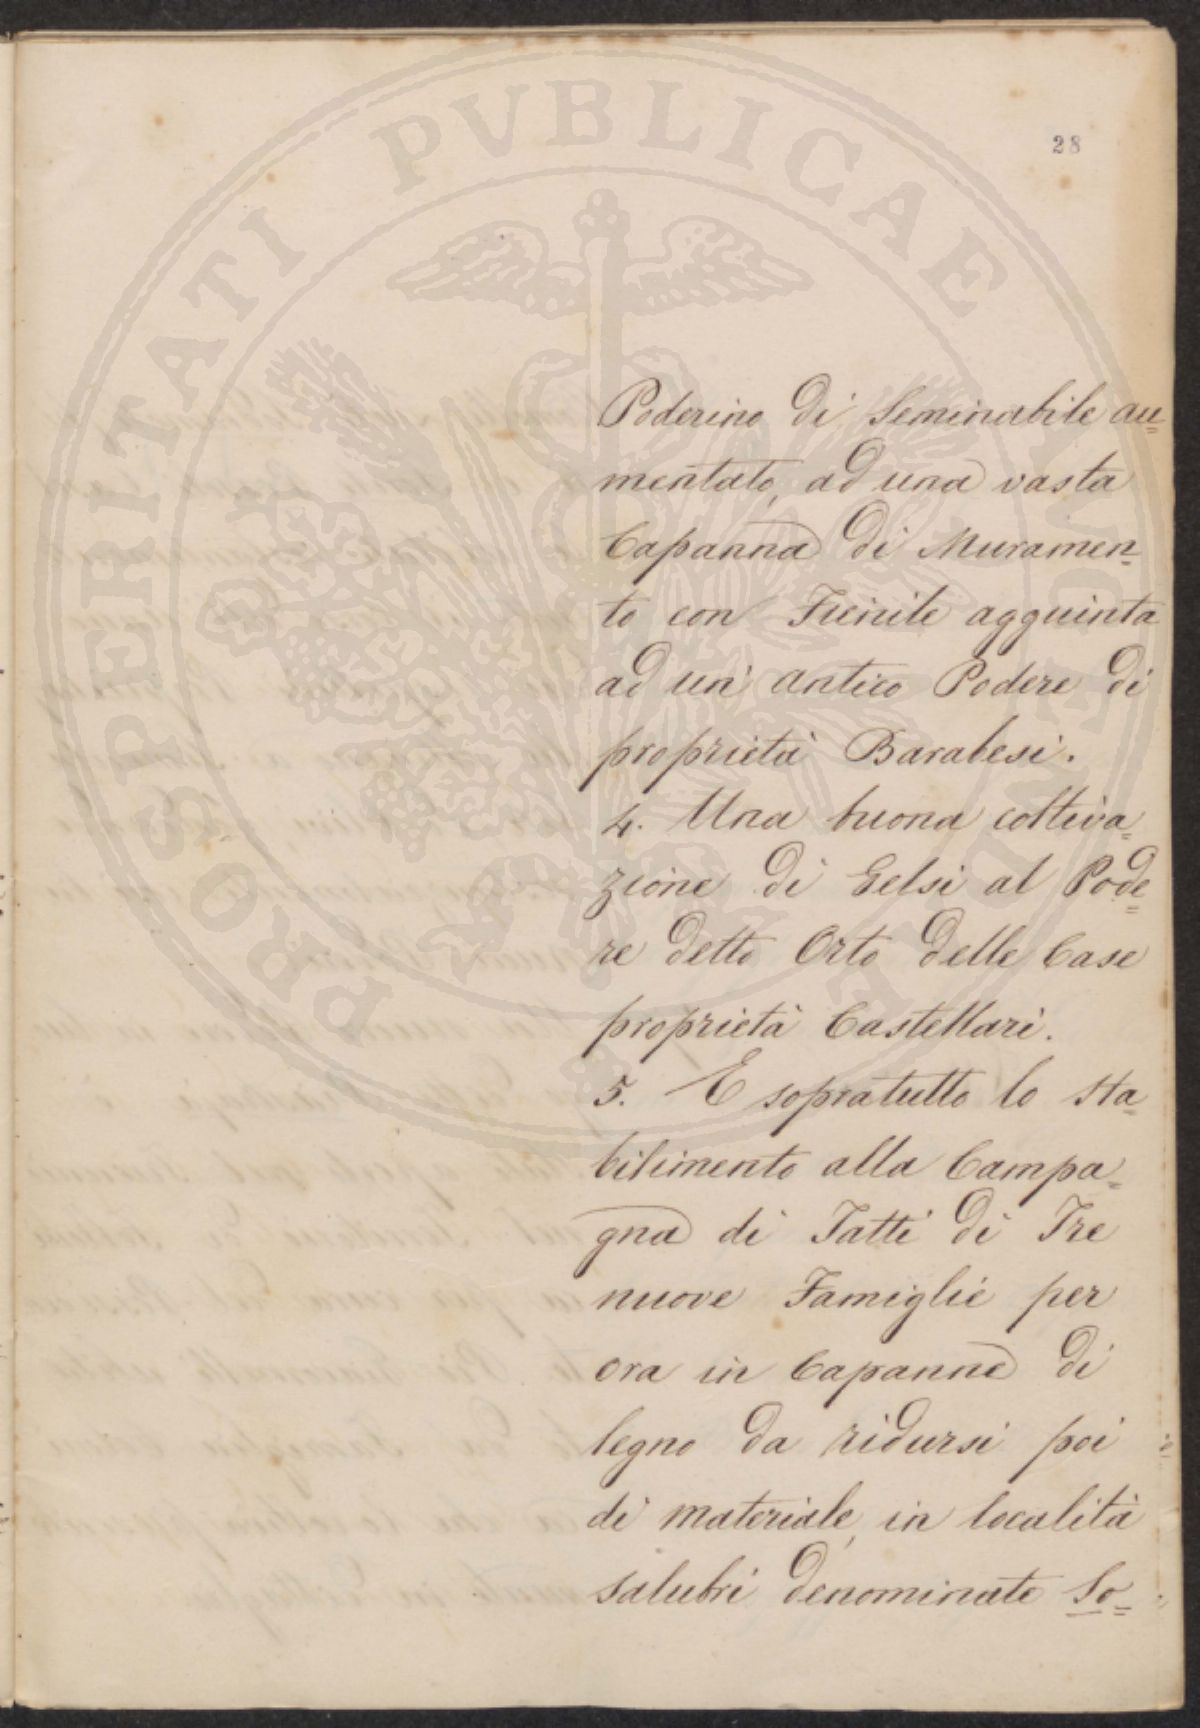 28
Poderino di Seminabile au=
mentato, ad una vasta
Capanna di Muramen=
to con Fienile aggiunta
ad un' antico Podere di
proprietà Barabesi.
4. Una buona coltiva=
zione di Gelsi al Pode=
re detto Orto delle Case
proprietà Castellari.
5. E sopratutto lo sta=
bilimento alla Campa=
gna di Tatti di Tre
nuove Famiglie per
ora in Capanne di
legno da ridursi poi
di materiale, in località
salubri denominate So=
PROSPERITATI PVBLICAE